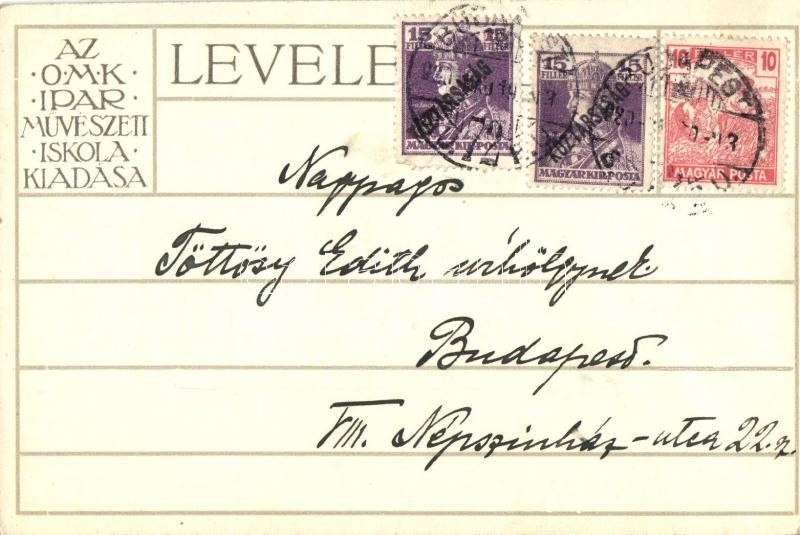 AZ
·O·M·K·
IPAR
MŰVÉSZETI
·ISKOLA·
KIADÁSA
LEVELE
15 15
FILLÉR FILLÉR
KÖZTÁRSASÁG
MAGYAR KIR. POSTA
15 15
FILLÉR FILLÉR
KÖZTÁRSASÁG
MAGYAR KIR. POSTA
10 FILLÉR 10
MAGYAR POSTA
Nagysagos
Töttösy Edith úrhölgynek
Budapest.
VIII. Népszinház-utca 22.